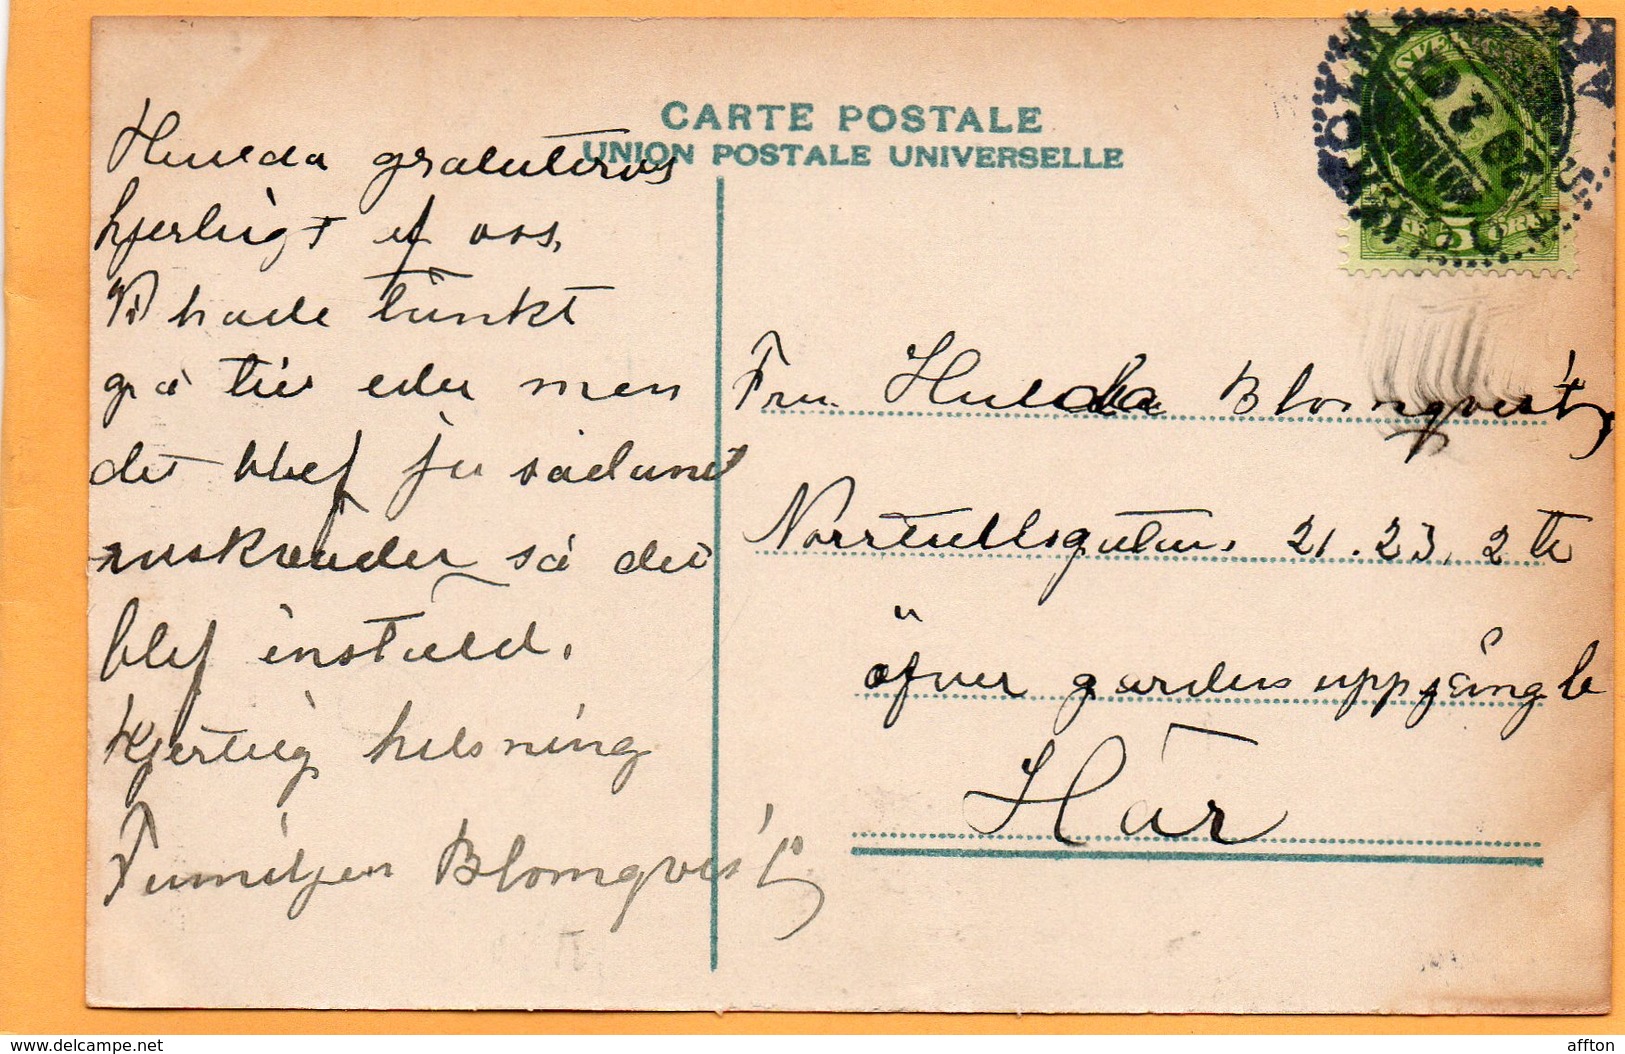 CARTE POSTALE
UNION POSTALE UNIVERSELLE
Hulda gratuleras
hjerligt af oss,
Vi hade tänkt
gå till eder men
det blef ju sådant
så det
blef inställd.
Kjertlig helsning
Familjen Blomqvist
Fru. Hulda Blomqvist,
Norrtullsgatan. 21.23. 2 tr
öfver gården uppgång b
Här
SVERIGE
5 ÖRE
delcampe.net
affton